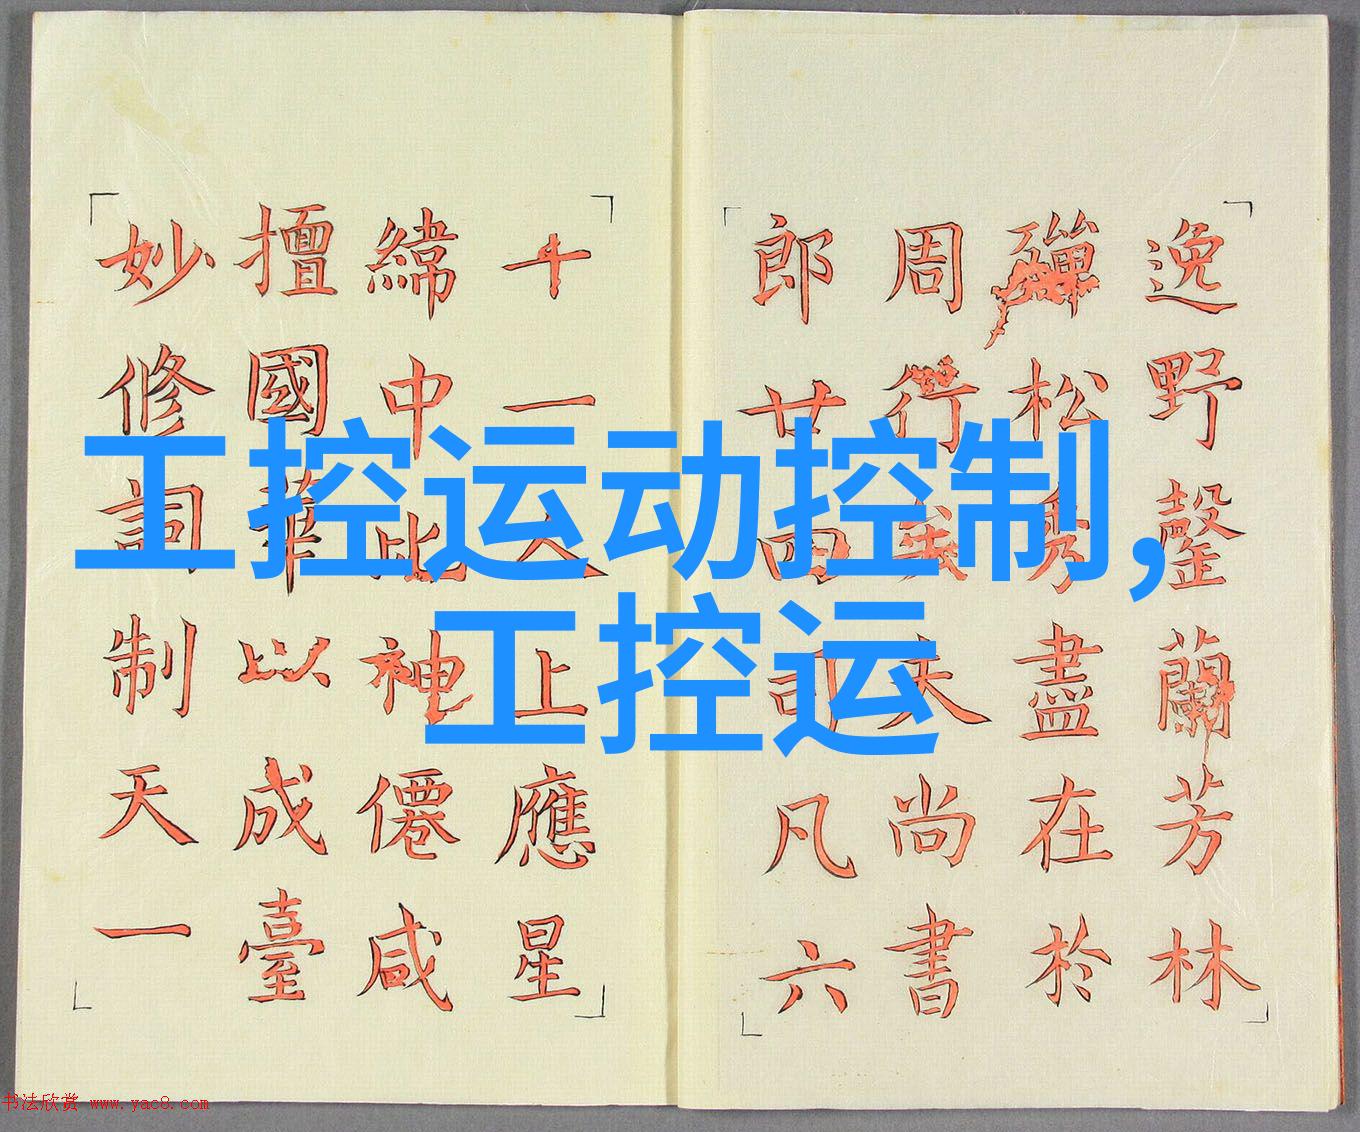 逸野罄蘭芳林
殫松秀盡在於
周行夫尚書
郎廿四司凡六
十一人上應星
緯中比神僊咸
擅國華以成臺
妙修詞制天一
工控运动控制,
工控运
书法欣赏 www.yac8.com